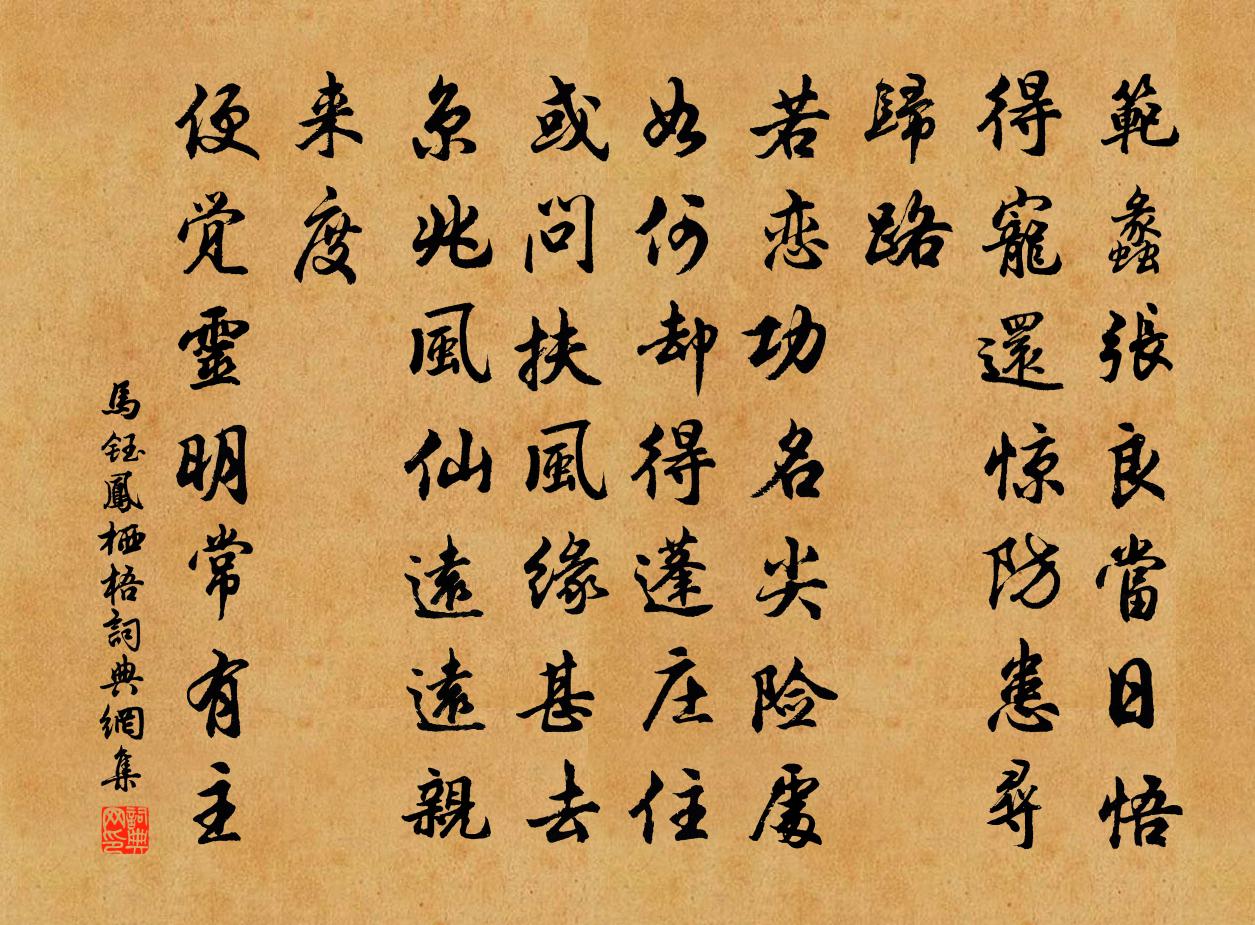 範蠡張良當日悟
得寵還惊防患尋
歸路
若恋功名尖险處
如何却得蓬庄住
或問扶風缘甚去
京兆風仙遠遠親
来度
便觉靈明常有主
馬鈺鳳栖梧詞典網集
詞典网印